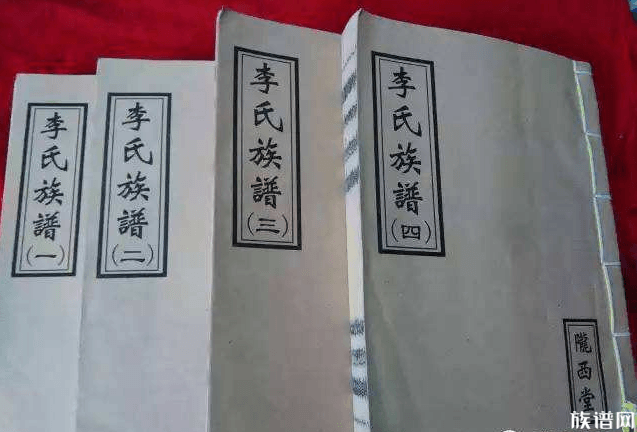 李氏族譜(一)
李氏族譜(二)
李氏族譜(三)
李氏族譜(四)
隴西堂
族谱网